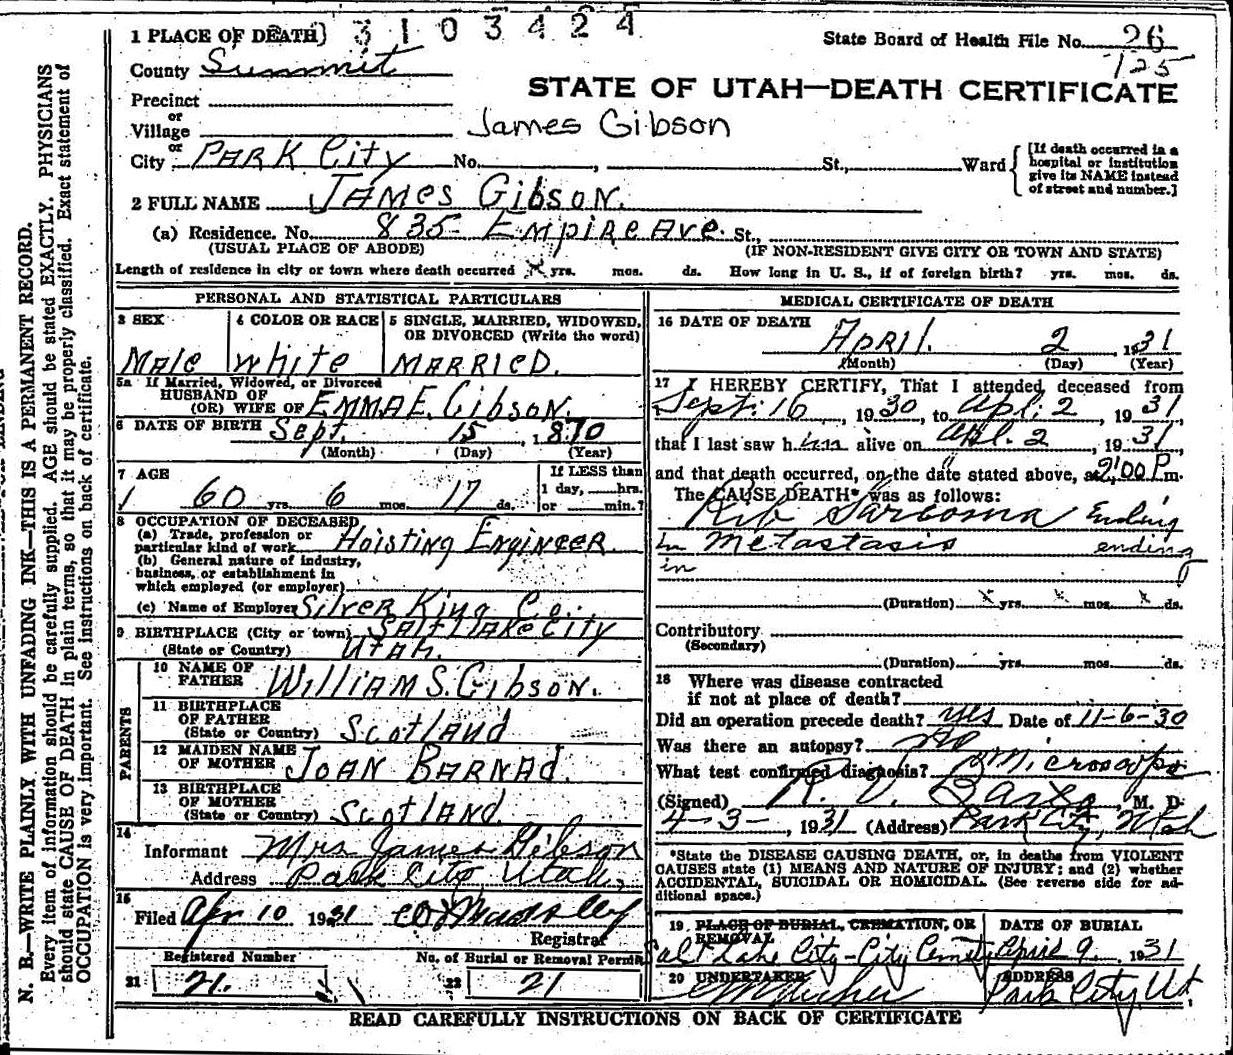 3 1 0 3 4 2 4
1 PLACE OF DEATH
State Board of Health File No. 26
125
County Summit
STATE OF UTAH—DEATH CERTIFICATE
Precinct
or
Village
James Gibson
or
City PARK City No. , St., Ward
[If death occurred in a hospital or institution give its NAME instead of street and number.]
2 FULL NAME JAMES GIBSON.
(a) Residence. No. 835 EMPIRE AVE. St.,
(USUAL PLACE OF ABODE) (IF NON-RESIDENT GIVE CITY OR TOWN AND STATE)
Length of residence in city or town where death occurred x yrs. mos. ds. How long in U. S., if of foreign birth? yrs. mos. ds.
PERSONAL AND STATISTICAL PARTICULARS
3 SEX
MALE
4 COLOR OR RACE
White
5 SINGLE, MARRIED, WIDOWED, OR DIVORCED (Write the word)
MARRIED.
5a If Married, Widowed, or Divorced
HUSBAND OF
(OR) WIFE OF EMMA E. Gibson.
6 DATE OF BIRTH Sept. 15, 1870
(Month) (Day) (Year)
7 AGE
60 yrs. 6 mos. 17 ds.
If LESS than
1 day, hrs.
or min.?
8 OCCUPATION OF DECEASED
(a) Trade, profession or
particular kind of work Hoisting ENGINEER.
(b) General nature of industry,
business, or establishment in
which employed (or employer)
(c) Name of Employer SILVER KING Co.
9 BIRTHPLACE (City or town) SALT LAKE CITY
(State or Country) UTAH.
PARENTS
10 NAME OF
FATHER WILLIAM S. Gibson.
11 BIRTHPLACE
OF FATHER
(State or Country) Scotland
12 MAIDEN NAME
OF MOTHER JOAN BARNAD.
13 BIRTHPLACE
OF MOTHER
(State or Country) Scotland.
14
Informant Mrs James Gibson
Address Park City, Utah,
15
Filed Apr 10 1931
Registrar
Registered Number
21 21.
No. of Burial or Removal Permit
22 21
MEDICAL CERTIFICATE OF DEATH
16 DATE OF DEATH
April. 2, 1931
(Month) (Day) (Year)
17 I HEREBY CERTIFY, That I attended deceased from
Sept. 16, 1930, to Apl. 2, 1931
that I last saw him alive on Apl. 2, 1931,
and that death occurred, on the date stated above, at 2:00 P.m.
The CAUSE DEATH* was as follows:
Rib Sarcoma Ending
in Metastasis ending
in
(Duration) x yrs. x mos. x ds.
Contributory
(Secondary)
(Duration) yrs. mos. ds.
18 Where was disease contracted
if not at place of death?
Did an operation precede death? yes Date of 11-6-30
Was there an autopsy? No
What test confirmed diagnosis? Microscope
(Signed) R. V. , M. D.
4-3-, 1931 (Address) Park City, Utah
*State the DISEASE CAUSING DEATH, or, in deaths from VIOLENT CAUSES state (1) MEANS AND NATURE OF INJURY; and (2) whether ACCIDENTAL, SUICIDAL OR HOMICIDAL. (See reverse side for additional space.)
19 PLACE OF BURIAL, CREMATION, OR REMOVAL
Salt Lake City-City Cemty
DATE OF BURIAL
April 9 1931
20 UNDERTAKER
ADDRESS
Park City, Ut.
READ CAREFULLY INSTRUCTIONS ON BACK OF CERTIFICATE
N. B.—WRITE PLAINLY WITH UNFADING INK—THIS IS A PERMANENT RECORD.
Every item of information should be carefully supplied. AGE should be stated EXACTLY. PHYSICIANS
should state CAUSE OF DEATH in plain terms, so that it may be properly classified. Exact statement of
OCCUPATION is very important. See instructions on back of certificate.